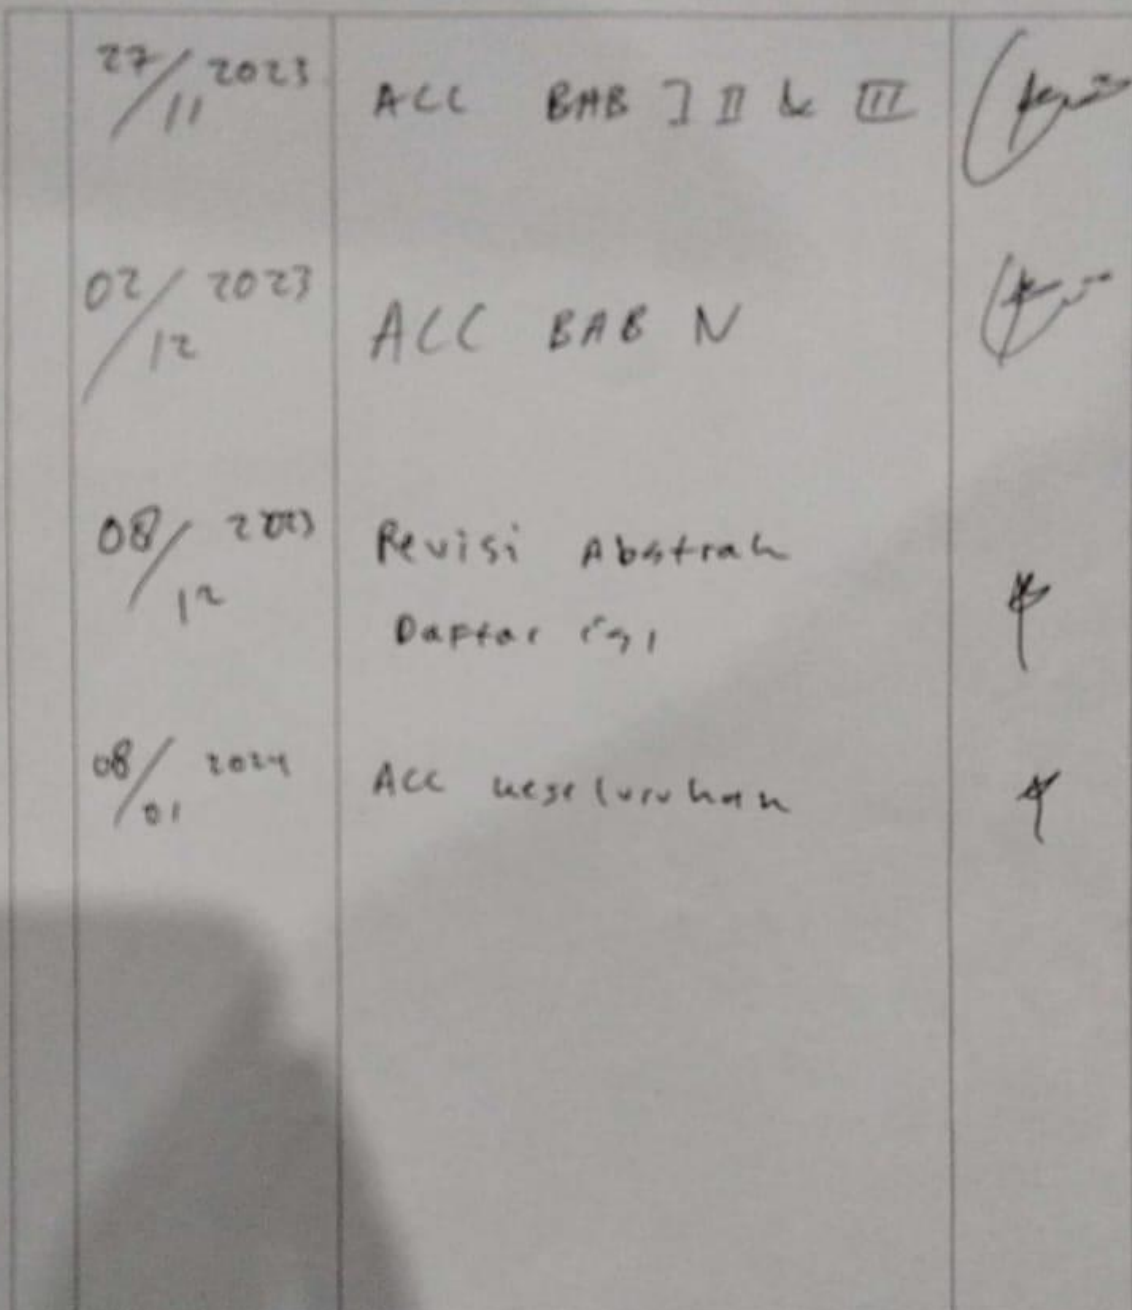 27/11 2023 ACC BAB I II & III
02/12 2023 ACC BAB IV
08/12 2023 Revisi Abstrak
Daftar isi
08/01 2024 Acc keseluruhan